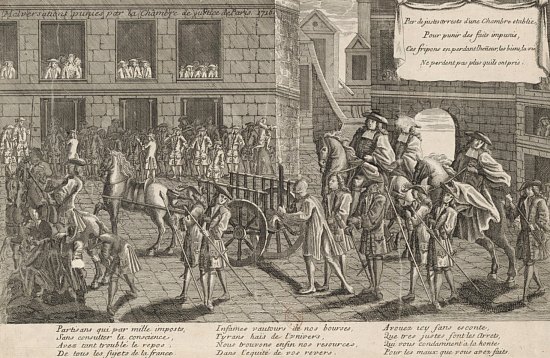 Malversations punies par la Chambre de justice de Paris. 1716
Par de justes arrets d'une Chambre etablie,
Pour punir des faits impunis,
Ces fripons en perdant l'hõneur, les biens, la vie
Ne perdent pas plus quils ont pris.
Partisans qui par mille imposts,
Sans consulter la conscience,
Avez tant troublé le repos
De tous les sujets de la france
Infames vautours de nos bourses,
Tyrans hais de l'univers;
Nous trouvons enfin nos resources,
Dans l'equité de vos revers.
Avouez icy sans esconte,
Que tres justes sont les Arrets,
Qui vous condamnent a la honte
Pour les maux que vous avez faits